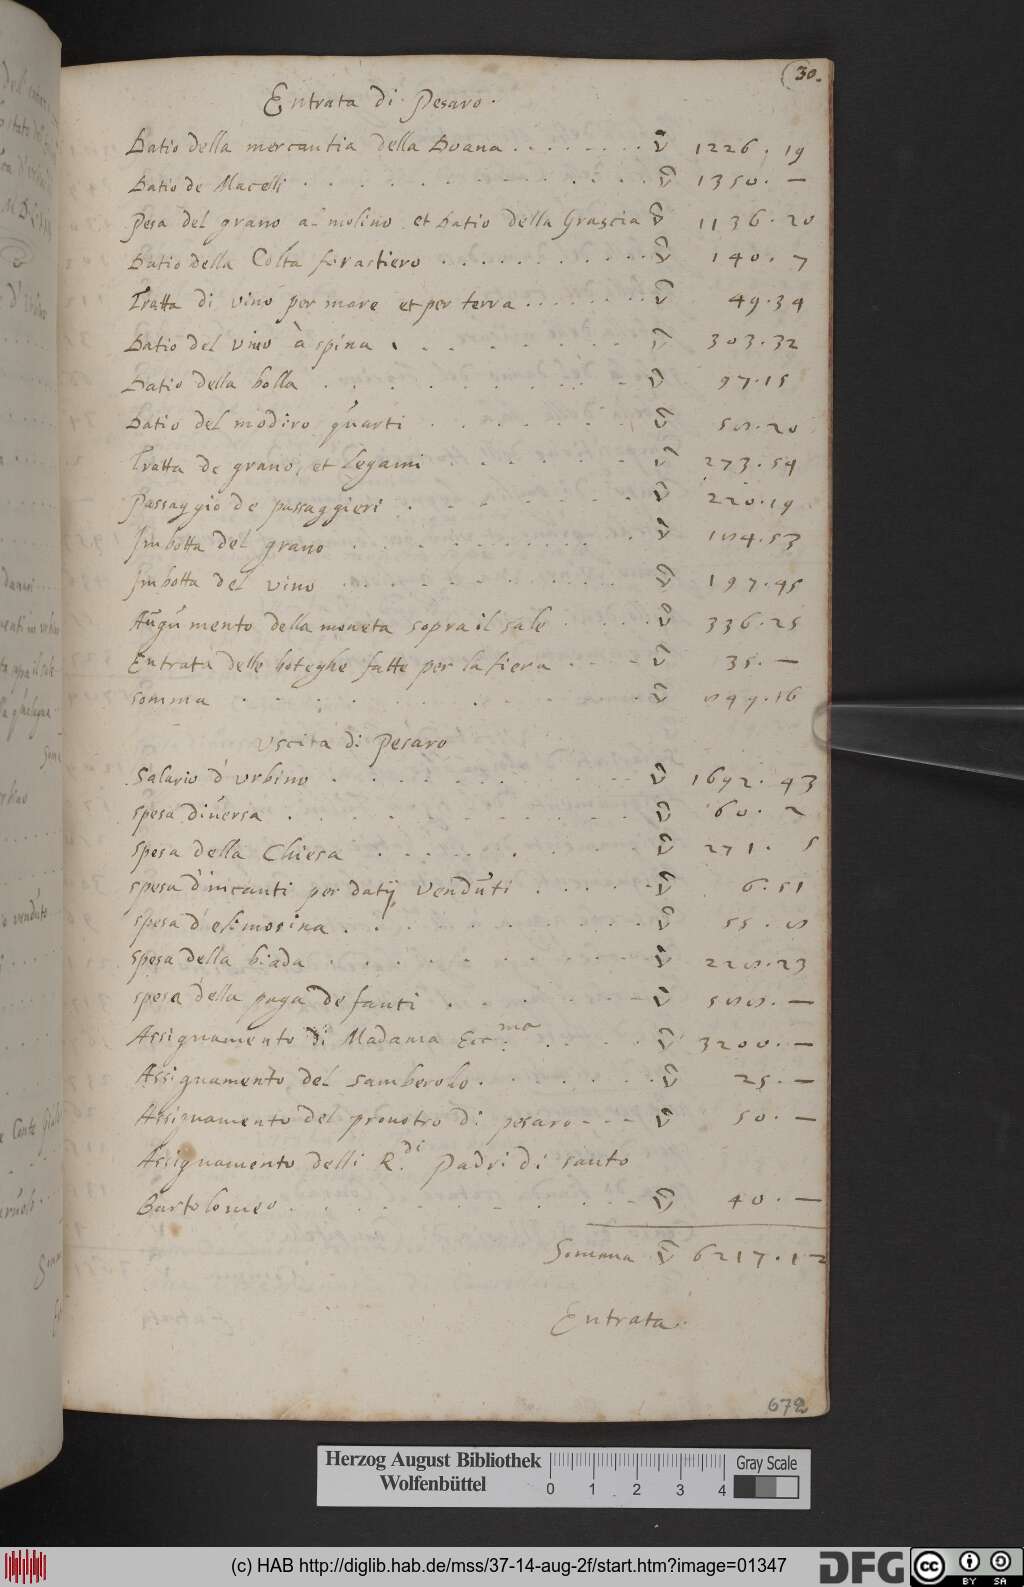 30.
Entrata di Pesaro.
Datio della mercantia della Doana ........ ▽ 1226. 19
Datio de Macelli ............. ▽ 1350. —
Pesa del grano al molino et Datio della Grascia ▽ 1136. 20
Datio della Colta forastiero ........... ▽ 140. 7
Tratta di vino per mare et per terra ....... ▽ 49.34
Datio del vino à spina ........ ▽ 303.32
Datio della bolla ........ ▽ 97.15
Datio del modiro quarti ....... ▽ 50.20
Tratta de grano, et legami ...... ▽ 273.54
Passaggio de passaggieri ....... ▽ 220.19
Imbotta del grano ........ ▽ 104.53
Imbotta del vino ........ ▽ 197.45
Augumento della moneta sopra il sale ..... ▽ 336.25
Entrata delle boteghe fatte per la fiera .... ▽ 35. —
somma ........... ▽
Uscita di Pesaro
Salario d'Urbino ......... ▽ 1692. 43
spesa diversa .......... ▽ 60. 2
spesa della Chiesa ........ ▽ 271. 5
spesa d'incanti per datij venduti ..... ▽ 6.51
spesa d'elimosina ......... ▽ 55. 0
spesa della biada ......... ▽ 220.23
spesa della paga de fanti ...... ▽ 500. —
Assignamento di Madama Ecc.ma ..... ▽ 3200. —
Assignamento del ....... ▽ 25. —
Assignamento del di pesaro --- ▽ 50. —
Assignamento delli R.di Padri di santo
Bartolomeo ......... ▽ 40. —
Somma ▽ 6217. 12
Entrata.
672
Herzog August Bibliothek
Wolfenbüttel
0 1 2 3 4
Gray Scale
(c) HAB http://diglib.hab.de/mss/37-14-aug-2f/start.htm?image=01347
DFG
cc BY SA